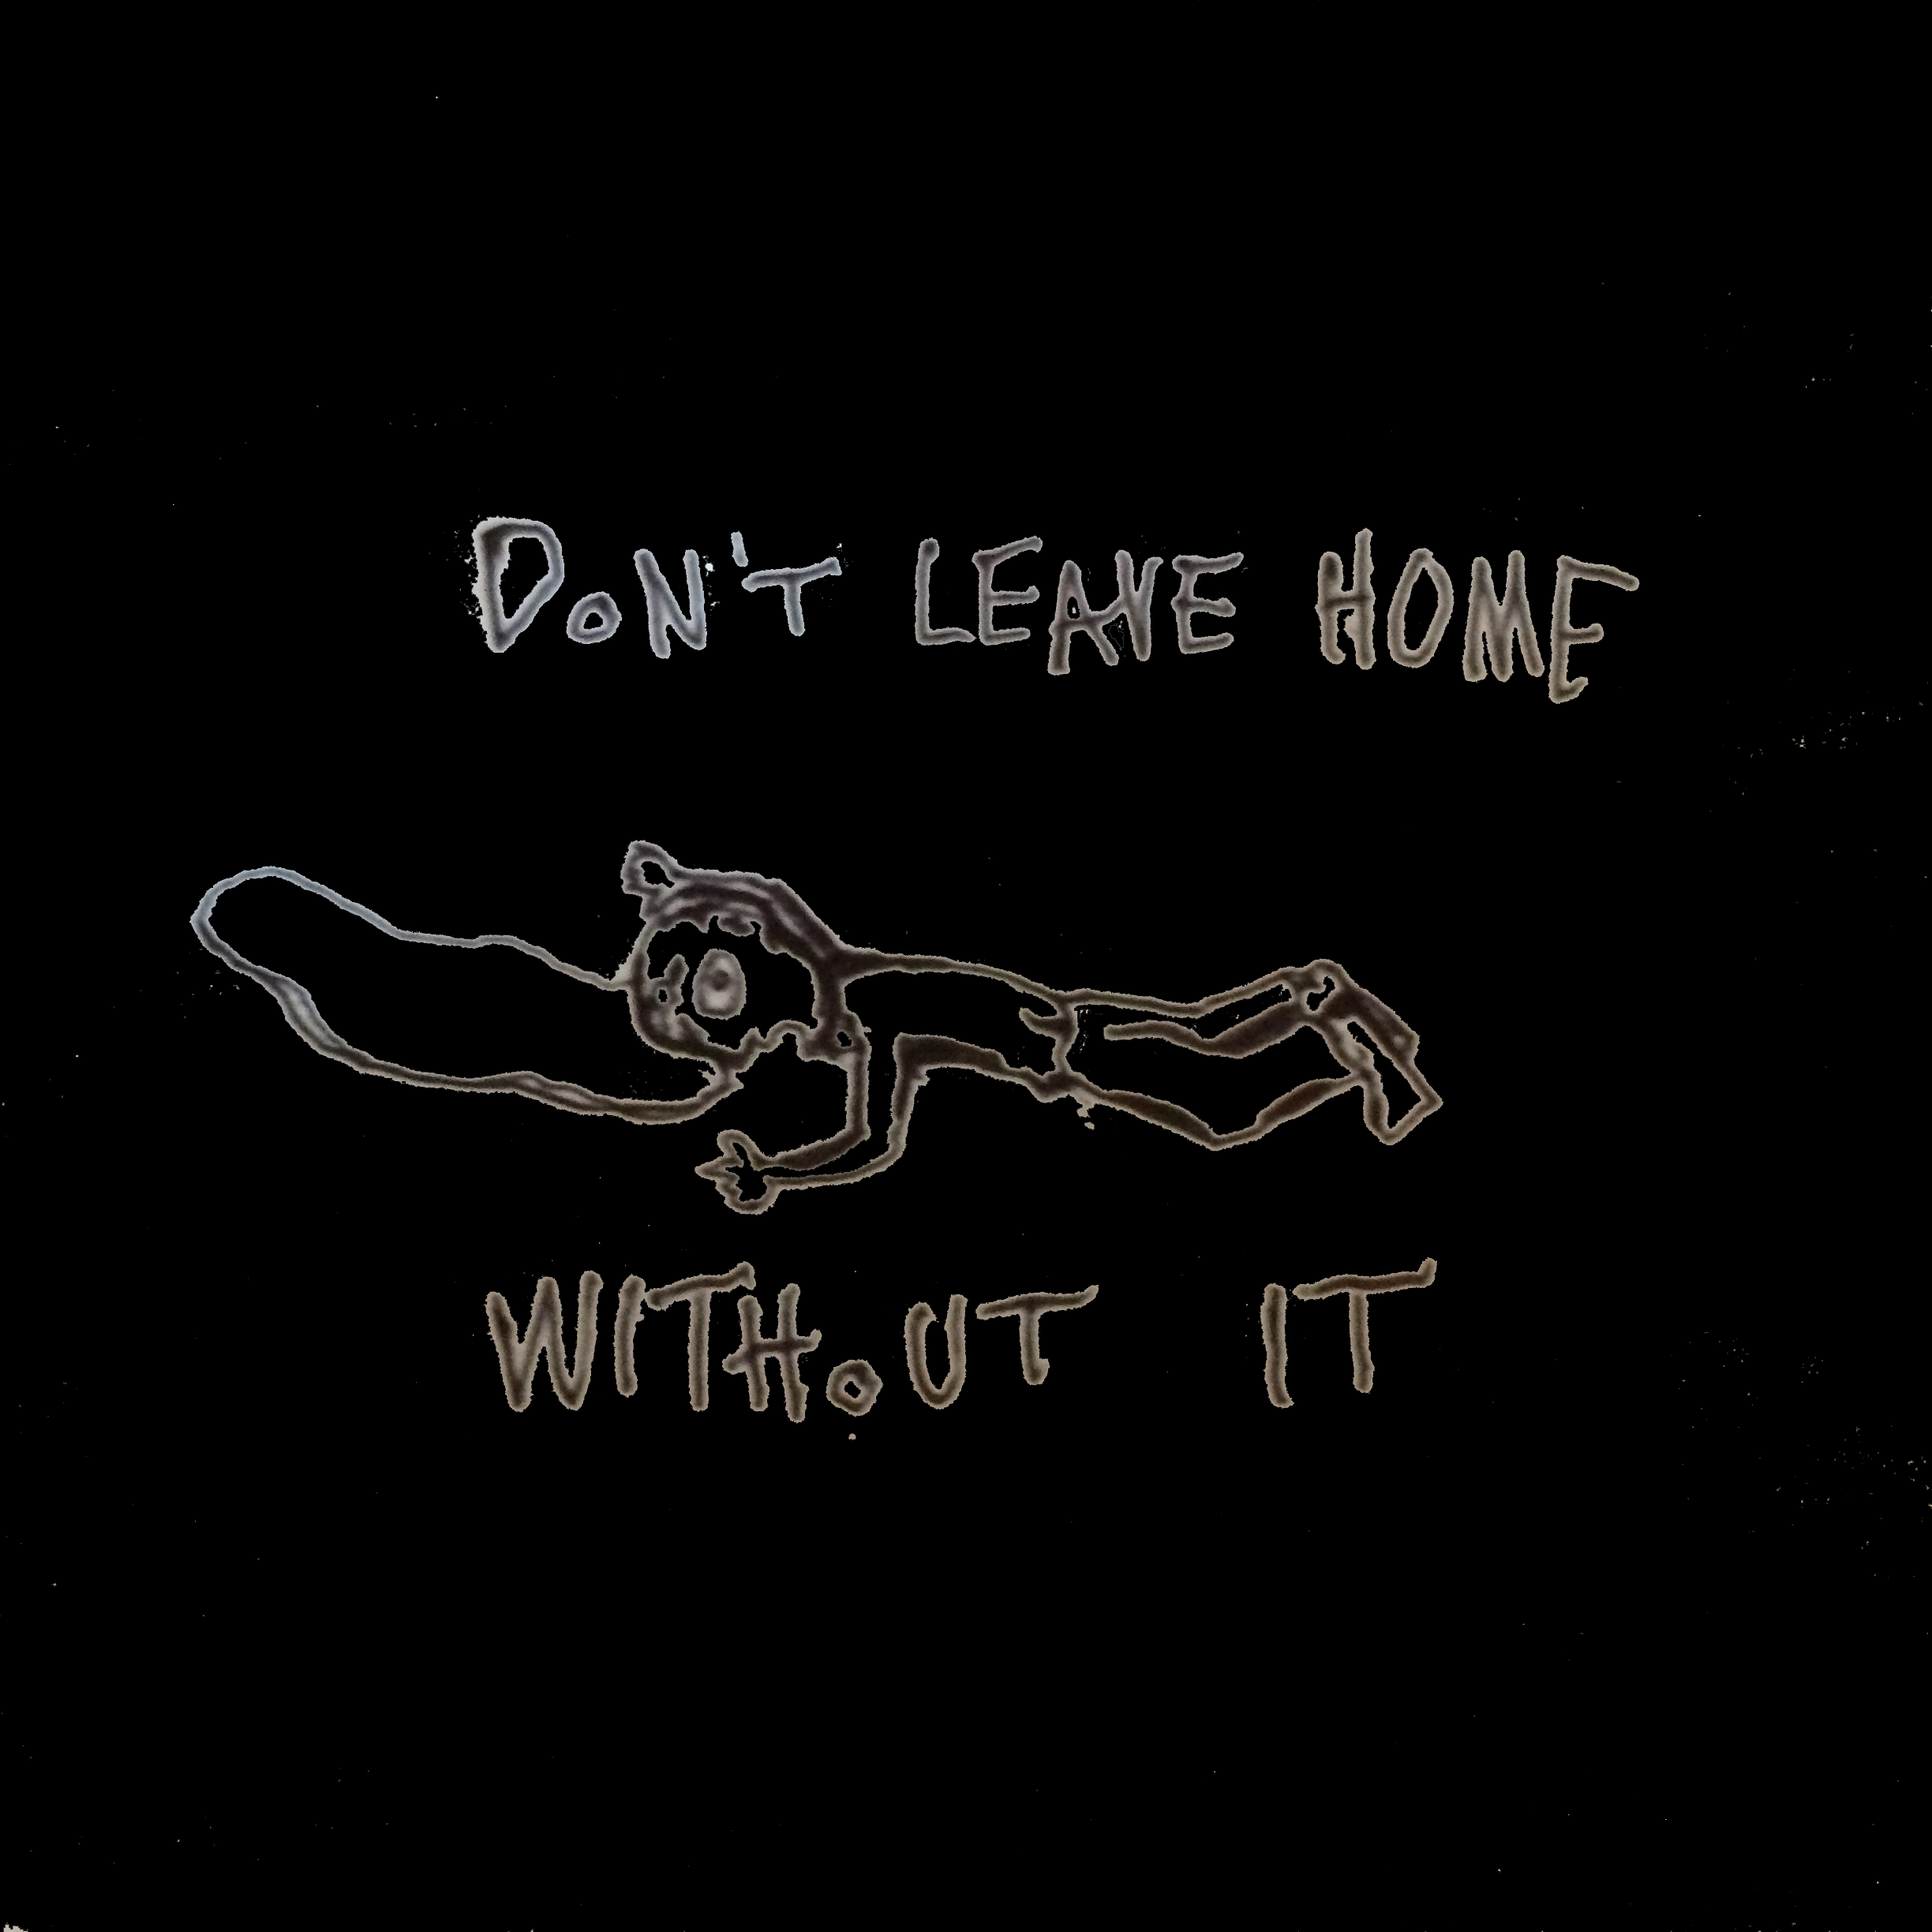 DoN'T LEAVE HOME
WITHoUT IT